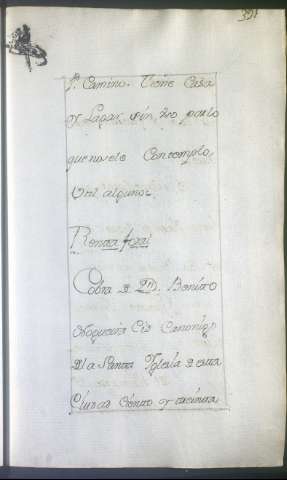 391
Camino. Tiene Casa
y Lagar, sin uso por lo
que no se le Contempla
Util alguno.
Renta foral
Cobra de Dn. Benito
Nogueira Cid Canonigo
de la Santa Iglesia de esta
Ciudad Ciento y treinta